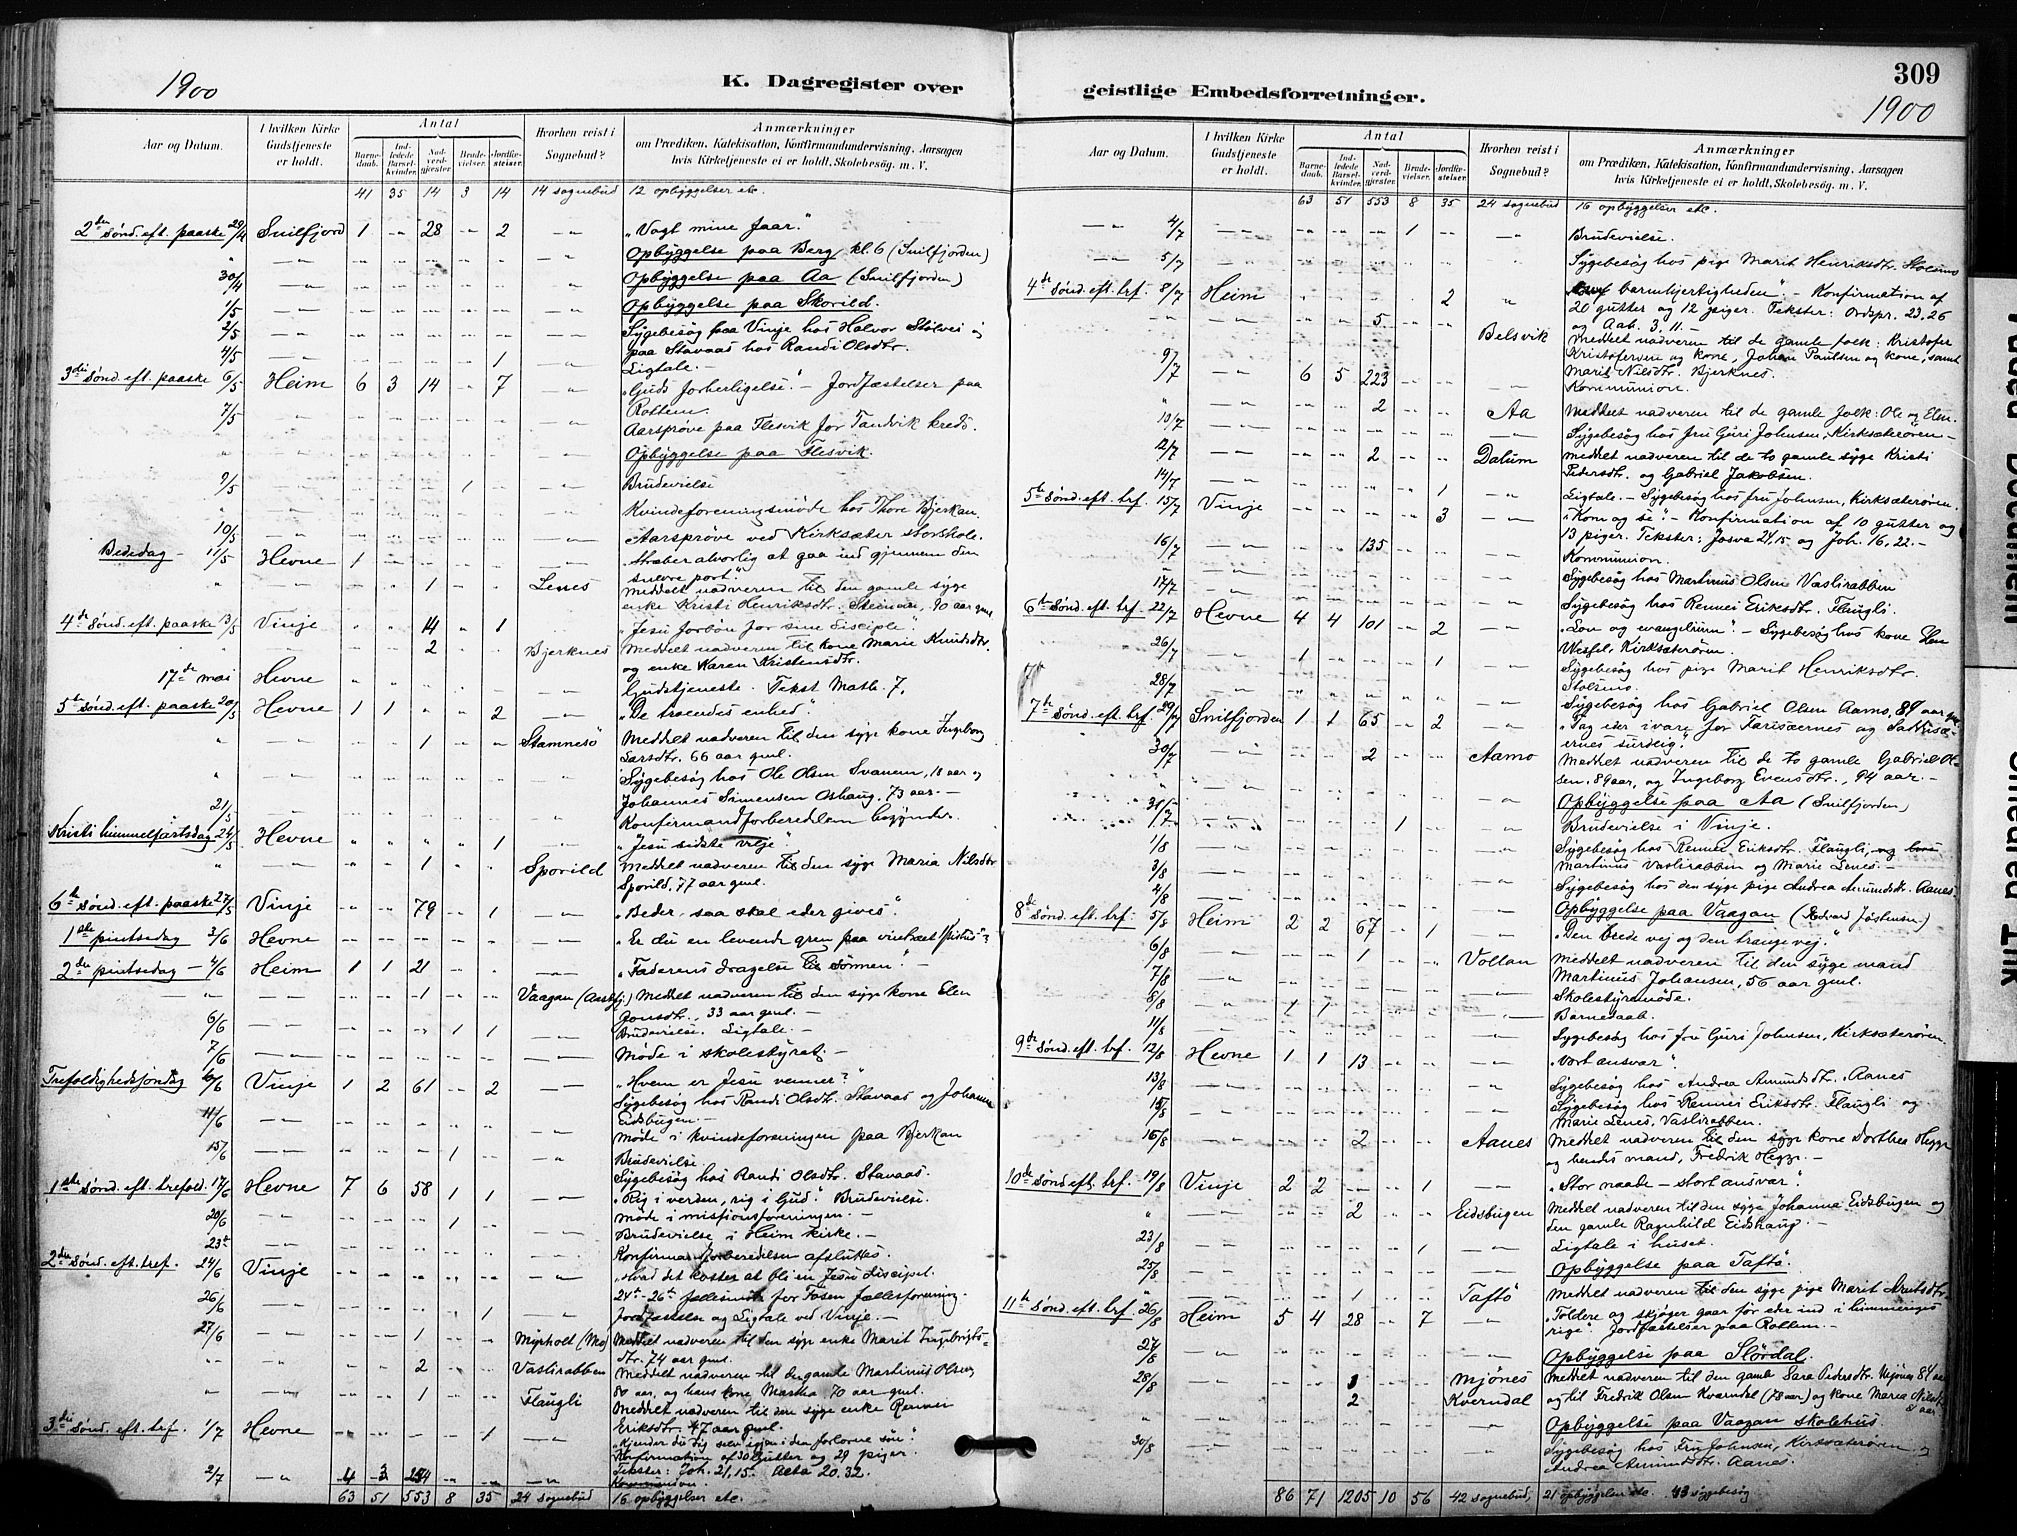 1900
K. Dagregister over
geistlige Embedsforretninger.
309
1900
Aar og Datum.
I hvilken Kirke Gudstjeneste er holdt.
Antal
Barnedaab.
Indledede Barselkvinder.
Nadverdgjester.
Brudevielser.
Jordfæstelser.
Hvorhen reist i Sognebud?
Anmærkninger
om Prædiken, Katekisation, Konfirmandundervisning, Aarsagen
hvis Kirketjeneste ei er holdt, Skolebesøg. m. V.
41 35 14 3 14 14 sognebud 12 opbyggelser etc.
2den sønd. eft. paaske 29/4 Snilfjord 1 -- 28 -- 2 "Vogt mine faar."
Opbyggelse paa Berg kl. 6 (Snilfjorden)
30/4 Opbyggelse paa Aa (Snilfjorden)
1/5 Opbyggelse paa Skorild.
2/5 Sygebesøg paa Vinje hos Halvor Stølvei og
paa Stavaas hos Randi Olsdtr.
4/5 1 Ligtale.
3die sønd. eft. paaske 6/5 Heim 6 3 14 7 "Guds forherligelse." – Jordfæstelser paa
Rottem.
7/5 Aarsprøve paa Flesvik for Tandvik kreds.
Opbyggelse paa Flesvik.
9/5 1 Brudevielse
Kvindeforeningsmøde hos Thore Bjerkan.
10/5 Aarsprøve ved Kirksæter storskole.
Bededag 11/5 Hevne 1 Stræber alvorlig at gaa ind gjennem den
snevre port."
1 Lenes Meddelt nadveren til den gamle syge
enke Kristi Henriksdtr. 90 aar gml.
4de sønd. eft. paaske 13/5 Vinje 14 1 "Jesu forbøn for sine disciple".
2 Bjerknes Meddelt nadveren til kone Marie Knudsdtr.
og enke Karen Kristensdtr.
17de mai Hevne Gudstjeneste. Tekst Math. 7,
5te sønd. eft. paaske 20/5 Hevne 1 1 2 "De troendes enhed."
1 Stamnesø Meddelt nadveren til den syge kone Ingeborg
Larsdtr. 66 aar gml.
Sygebesøg hos Ole Olsen Svanem, 18 aar og
Johannes Simensen Oshaug, 73 aar. –
21/5 Konfirmandforberedelsen begynder.
Kristi himmelfartsdag 24/5 Hevne 1 "Jesu sidste vilje"
1 Sporild Meddelt nadveren til den syge Maria Nilsdtr
Sporild, 77 aar gml.
6te sønd. eft. paaske 27/5 Vinje 79 1 "Beder, saa skal eder gives".
1ste pintsedag 3/6 Hevne "Er du en levende gren paa vintræet Kristus"?
2den pintsedag 4/6 Heim 1 1 21 "Faderens dragelse til sønnen". –
1 Vaagan Meddelt nadveren til den syge kone Elen
Jonsdtr., 33 aar gml. –
6/6 1 1 Brudevielse. Ligtale. –
7/6 Møde i skolestyret. –
Trefoldighedssøndag 10/6 Vinje 1 2 61 2 "Hvem er Jesu venner?"
Sygebesøg hos Randi Olsdtr. Stavaas og Johanna
Eidsbugen.
11/6 Møde i kvindeforeningen paa Bjerkan
15/6 1 Brudevielse.
Sygebesøg hos Randi Olsdtr. Stavaas.
1ste sønd. eft. trefold. 17/6 Hevne 7 6 58 1 1 "Rig i verden, rig i Gud." Brudevielse.
Møde i misjionsforeningen. –
20/6 1 Brudevielse i Heim kirke. –
23de Konfirmandforberedelsen afslutes.
2den sønd. eft. tref. 24/6 Vinje "Hvad det koster at bli en Jesu discipel.
24de–26de fællesmøde for Fosen fællesforening.
26/6 1 Jordfæstelse og Ligtale ved Vinje. –
27/6 1 Myrholt (Mo) Meddelt nadveren til den syge enke Marit Ingebrigts-
dtr. 74 aar gml.
2 Vaslirabben Meddelt nadveren til de gamle Martinus Olsen,
80 aar, og hans kone Martha 70 aar gml.
1 Flaugli Meddelt nadveren til den syge enke Rennei
Eriksdtr. 47 aar gml.
3die sønd. eft. trf. 1/7 Hevne 1 "Kjender du dig selv igjen i den forlorne søn".
Konfirmation af 30 Gutter og 29 piger.
Tekster: Joh. 21, 15. Acta 20. 32.
2/7 4 3 254 Kommunion.
63 51 553 8 35 24 sognebud 16 opbyggelser etc.
Aar og Datum.
I hvilken Kirke Gudstjeneste er holdt.
Antal
Barnedaab.
Indledede Barselkvinder.
Nadverdgjester.
Brudevielser.
Jordfæstelser.
Hvorhen reist i Sognebud?
Anmærkninger
om Prædiken, Katekisation, Konfirmandundervisning, Aarsagen
hvis Kirketjeneste ei er holdt, Skolebesøg. m. V.
63 51 553 8 35 24 sognebud 16 opbyggelser etc.
4/7 1 Brudevielse.
5/7 Sygebesøg hos pige Marit Henriksdtr. Stolsmo
4de sønd. eft. trf. 8/7 Heim 2 barmhjertigheden". – Konfirmation af
20 gutter og 12 piger. Tekster: Ordspr. 23, 26
og Aab. 3. 11. –
5 Belsvik Meddelt nadveren til de gamle folk: Kristofer
Kristofersen og kone, Johan Paulsen og kone, samt
Marit Nilsdtr. Bjerknes.
9/7 6 5 223 Kommunion.
2 Aa Meddelt nadveren til de gamle folk: Ole og Elen.
10/7 Sygebesøg hos fru Guri Johnsen, Kirksæterøren –
12/7 2 Dalum Meddelt nadveren til de to gamle syge Kristi
Pedersdtr. og Gabriel Jakobsen.
14/7 1 Ligtale. – Sygebesøg hos fru Johnsen, Kirksæterøren.
5te sønd. eft. trf. 15/7 Vinje 3 "Kom og se". – Konfirmation af 10 gutter og
13 piger. Tekster: Josva 24, 15 og Joh. 16, 22. –
16/7 135 Kommunion.
17/7 Sygebesøg hos Martinus Olsen Vaslirabben
Sygebesøg hos Rennei Eriksdtr. Flaugli.
6te sønd. eft. trf. 22/7 Hevne 4 4 101 2 "Lov og evangelium". – Sygebesøg hos kone
Wesfel, Kirksæterøren.
26/7 1 1 Sygebesøg hos pige Marit Henriksdtr.
Stolsmo.
28/7 Sygebesøg hos Gabriel Olsen Aamo, 89 aar
7de sønd. eft. trf. 29/7 Snilfjorden 1 1 65 2 "Tag eder ivare for Farisæernes og Saddukæ-
ernes surdeig".
30/7 2 Aamo Meddelt nadveren til de to gamle Gabriel Ol-
sen, 89 aar, og Ingeborg Evensdtr., 94 aar. –
Opbyggelse paa Aa (Snilfjorden)
31/7 1 Brudevielse i Vinje.
1/8 Sygebesøg hos Rennei Eriksdtr. Flaugli,
Martinus Vaslirabben og Marie Lenes. –
3/8 Sygebesøg hos den syge pige Andrea Amundsdtr. Aanes.
4/8 Opbyggelse paa Vaagan (Edvard Jøstensen)
8de sønd. eft. trf. 5/8 Heim 2 2 67 1 "Den brede vej og den trange vej."
6/8 1 Vollan Meddelt nadveren til den syge mand
Martinus Johansen, 56 aar gml.
7/8 Skolestyremøde.
8/8 1 1 Barnedaab.
11/8 Sygebesøg hos Fru Guri Johnsen, Kirksæterøren.
9de sønd. eft. trf. 12/8 Hevne 1 1 13 "Vort ansvar".
13/8 Sygebesøg hos Andrea Amundsdtr. Aanes
15/8 Sygebesøg hos Rennei Eriksdtr. Flaugli og
Marie Lenes, Vaslirabben.
16/8 2 Aanes Meddelt nadveren til den syge kone Dorthea Hegge
og hendes mand, Fredrik Hegge. –
10de sønd. eft. trf. 19/8 Vinje 2 2 1 "Stor naade – stort ansvar".
2 Eidsbugen Meddelt nadveren til den syge Johanna Eidsbugen og
den gamle Ragnhild Eidshaug. –
23/8 1 Ligtale i huset.
25/8 Opbyggelse paa Taftø.
1 Taftø Meddelt nadveren til den syge pige Marit
11te sønd. eft. trf. 26/8 Heim 5 4 28 7 "Toldere og skjøger gaar før eder ind i himmeriges
rige". Jordfæstelser paa Rottem. –
27/8 Opbyggelse paa Slørdal.
28/8 Mjönes Meddelt nadveren til den gamle Sara Pedersdtr. Mjönes 84 aar
2 Kverndal og til Fredrik Olsen Kverndal (78 aar) og kone Maria
Opbyggelse paa Vaagan skolehus.
30/8 Sygebesøg hos Fru Johnsen, Kirksæterøren og
Andrea Amundsdtr. Aanes.
86 71 1205 10 56 42 sognebud, 21 opbyggelser etc. 43 sygebesøg